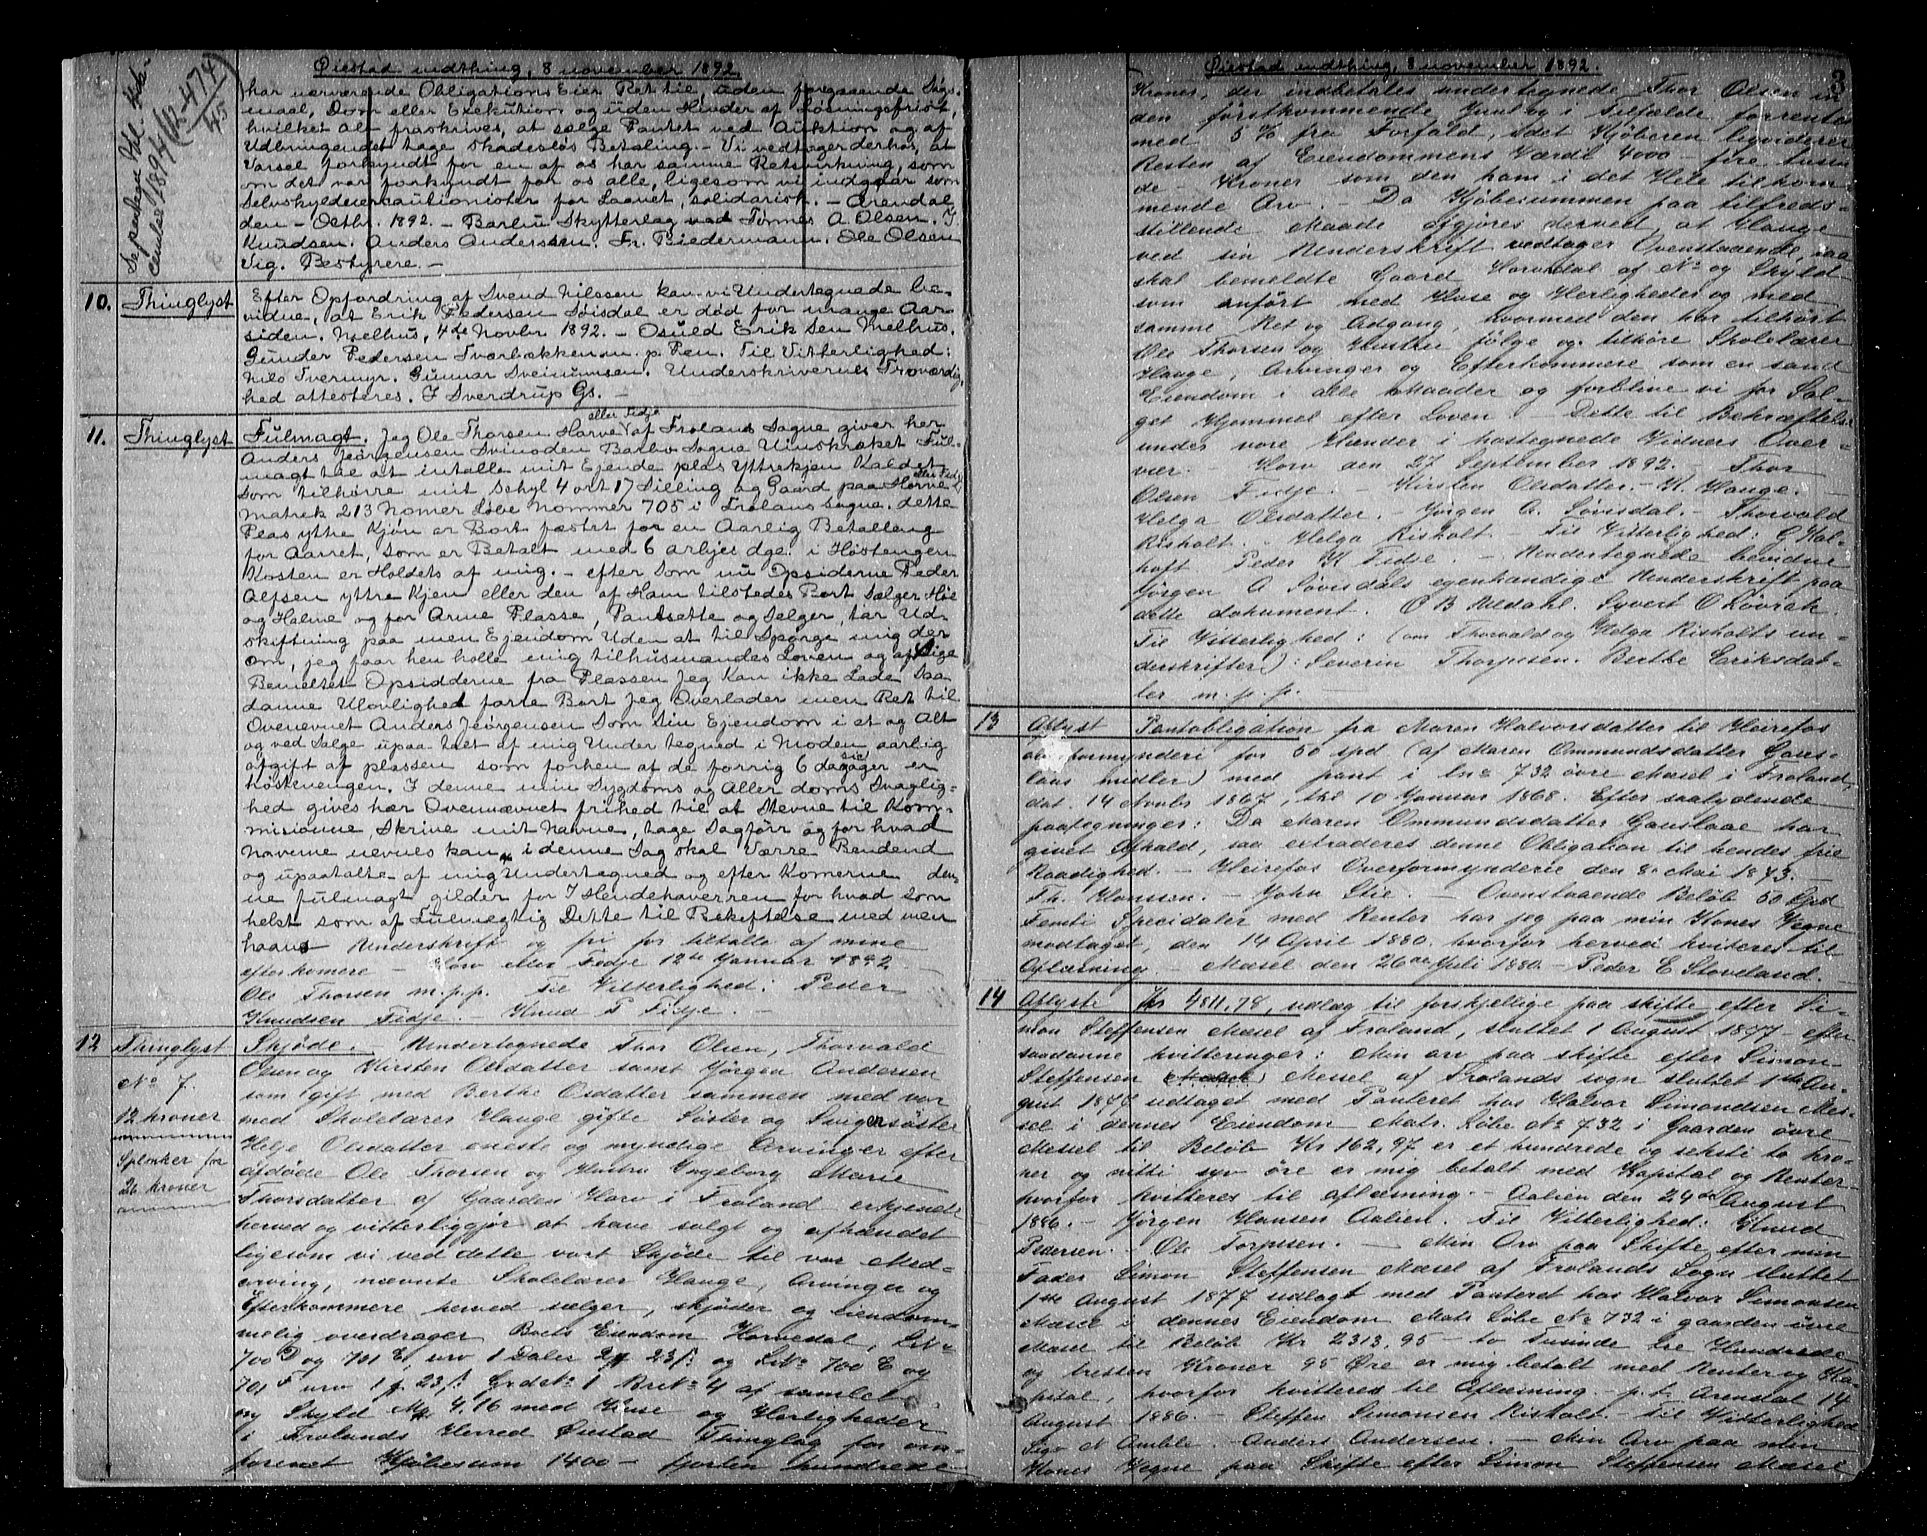 Øiestad vedthing, 8 november 1892.
har nærværende Obligations Eier Ret til, uden foregaaende Søgs-
maal, Dom eller Exekution og uden Hinder af Løsningsfrist,
hvilket alt fraskrives, at sælge Pantet ved Auktion og af
Udbringendet tage skadesløs Betaling. - Vi vedtager derhos, at
Varsel forkyndt for en af os har samme Retsvirkning, som
om det var forkyndt for os alle, ligesom vi indgaar som
Selvskyldnercautionister for Laanet, solidarisk. - Arendal
den - Octbr. 1892. - Barbu Skytterlag ved Tønnes A Olsen. J
Knudsen. Anders Anderssen. Fr. Biedermann. Ole Olsen
Vig. Bestyrere. -
10. Thinglyst
Efter Opfordring af Svend Nilssen kan vi Undertegnede be-
vidne, at Erik Pedersen Søisdal er død for mange Aar-
siden. Mælhus, 4de Novbr. 1892. - Osuld Erik Sen Melhus.
Gunder Pedersen Tværbækkensm. p. Pen. Til Vitterlighed:
Nils Tvermyr. Gunnar Sveinumsen. Underskrivernes Troværdig-
hed attesteres. J Sverdrup Gs. -
11. Thinglyst
eller Fidje
Fulmagt. Jeg Ole Thorsen Harve af Frolans Sogne giver her
Anders Jeørgensen Svinoden Barbo Sogne Uinskræket Ful-
magt til at intalle mit Ejende plas Yttrekjen Kaldet
Som tilhørre mit Schyl 4 ort 17 Silling og Gaard paa Horve
Matrek 213 Nomer Løbe Nommer 705 i Frolans sogne. dette
Plas yttre Kjøn er Bort fæstet for en Aarlig Betalleng
for Aarret, som er Betalt med 6 arbjes dge. i Høstengen
Kosten er Holdets af mig. - efter som nu Opsiderne Peder
Alfsen yttre Kjen eller den af Ham tilstedes Bort Sælger Høe
og Halme og for Arne Plasse, Pantsette og Selger, tar Ud-
skiftning paa men Ejendom Uden at til Spørge mig der
om, jeg faar hen holle mig tilhusmandes Loven og af Sige
Bemeltet Opsidderne fra Plassen Jeg Kan ikke Lade Saa
danne Ulovlighed farre Bort Jeg Overlader men Ret til
Ovenevnet Anders Jeørgensen Som Sin Ejendom i et og Alt
og ved Salge upaa talet af mig Under tegned i Moden aarlig
afgift af plassen som forhen af de forrig 6 dagager er
høstevengen. I denne min Sygdoms og Aller doms Svaglig-
hed gives har Ovennævnet frihed til at Stevne til Kom-
misionne Skrive mit Navne, tage Sagførr og for hvad
Navnene nevnes kan, i denne Sag skal Værre Bendend
og upaatalte af mig Undertegned og efter Komerne den-
ne fulmagt gilder for I Hendehaverren for hvad som
helst som af Fulmegtig Dette til Bekiftelse med men
haans Underskrift og fri for tiltalle af mine
efterkomere - Horv eller Fidje 12te Januar 1892
Ole Thorsen m.p.p. Til Vitterlighed: Peder
Knudsen Fidje. - Knud P Fidje. -
12 Thinglyst
No 7.
12 kroner
26 kroner
Skjøde. - Undertegnede Thor Olsen, Thorvald
Olsen og Kirsten Olsdatter samt Jørgen Andersen
som gift med Berthe Olsdatter sammen med vor
med Skolelærer Hauge gifte Søster og Svigersøster
Helje Olsdatter eneste og myndige Arvinger efter
afdøde Ole Thorsen og Hustru Ingeborg Marie
Thorsdatter af Gaarden Horv i Froland erkjender
herved og vitterliggjør at have solgt og afhændet
ligesom vi ved dette vort Skjøde til vor Med-
arving, nævnte Skolelærer Hauge, Arvinger og
Efterkommere herved sælger, skjøder og eiendom-
melig overdrager Vorts Eiendom Horvedal, Lit.
700 D og 701 E, urv 1 Daler 2 ort 23 ß og Lit. 700 E og
701 F urv 1 ß 23 ß. Grdsno 1 Brno 4 af samlet
ny Skyld Mk 4,16 med Huse og Herligheder
i Frolands Herred Øiestad Thinglag for om-
forenet Kjøbesum 1400 - fjorten hundrede
Øiestad vedthing, 8 november 1892.
3
Kroner, der indbetales undertegnede Thor Olsen in-
den førstkommende Juul og i Tilfælde forrentes
med 5 % fra Forfald, idet Kjøberen liqviderer
Resten af Eiendommens Værdi 4000 - fire tusin
de - Kroner som den ham i det Hele tilkom-
mende Arv. - Da Kjøbesummen paa tilfreds-
stillende Maade afgjøres derved, at Hauge
ved sin Underskrift vedtager Ovenstaaende, saa
skal bemeldte Gaard Horvedal af No og Skyld
som anført med Huse og Herligheder og med
samme Ret og Adgang, hvormed den har tilhørt
Ole Thorsen og Hustru følge og tilhøre Skolelærer
Hauge, Arvinger og Efterkommere som en sand
Eiendom i alle Maader og forblive vi for Sal-
get Hjemmel efter Loven - Dette til Bekræftelse
under vore Hænder i hostegnede Vidners Over-
vær. - Horv den 27 September 1892. - Thor
Olsen Fidje. - Kirsten Olsdatter. - K. Hauge. -
Helga Olsdatter. - Jørgen A. Søvisdal. - Thorvald
Risholt. - Helga Risholt. - Til Vitterlighed: G Hol-
hoft Peder K Fidje. - Undertegnede bevidne
Jørgen A Søvisdals egenhændige Underskrift paa
dette dokument. O B Nedahl. Syvert O Løvrak.
Til Vitterlighed: (om Thorvald og Helga Risholts un-
derskrifter): Severin Thorpesen. Berthe Eriksdat-
ter m.p.p. -
13 Aflyst
Pantobligation fra Maren Halvorsdatter til Heirefos
overformynderi for 50 spd (af Maren Ommundsdatter Gaus-
laas midler) med pant i lno 732 øvre Mæsel i Froland,
dat. 14 Novbr 1867, thl 10 Januar 1868. Efter saalydende
paategninger: Da Maren Ommundsdatter Gauslaae har
givet Afkald, saa extraderes denne Obligation til hendes frie
Raadighed. - Heirefos Overformynderie den 8. Mai 1873. -
Th. Hanssen. - John Lie. - Ovenstaaende Beløb 50 Spd
Femti Specidaler med Renter har jeg paa min Kones Vegne
modtaget, den 14 April 1880. hvorfor herved kviteres til
Aflæsning. - Mæsel den 26de Juli 1880 - Peder E Stoveland.
14 Aflyst
Kr 4811,78, udlæg til forskjellige paa skifte efter Si-
mon Steffensen Mæsel af Froland, sluttet 1 August 1877 efter
saadanne kvitteringer: Min arv paa skifte efter Simon
Steffensen Mæsel af Frolands sogn sluttet 1ste Au-
gust 1877 udlaget med Panteret hos Halvor Simondsen Mæ-
sel i dennes Eiendom Matr. Løbe No 732 i Gaarden øvre
Mæsel til Beløb Kr 162,97 er et hundrede og seksti to kro-
ner og nitti syv øre er mig betalt med Kapital og Renter
hvorfor kvitteres til aflæsning. - Aalien den 24de August
1886. - Jørgen Hansen Aalien. Til Vitterlighed: Knud
Pedersen. - Ole Torpesen. - Min Arv paa Skifte efter min
Fader Simon Steffensen Mæsel af Frolands Sogn sluttet
1ste August 1877 udlagt med Panteret hos Halvor Simonsen
Mæsel i dennes Eiendom Matr Løbe No 732 i gaarden øvre
Mæsel til Beløb Kr 2313,95 - to Tusinde tre Hundrede
og tretten Kroner 95 Øre er mig betalt med Renter og Ka-
pital, hvorfor kvitteres til Aflæsning. p.t. Arendal 14
August 1886. - Steffen Simonsen Risholt. - Til Vitterlighed
N Amble. - Anders Andersen. - Min Arv paa min
Kones Vegne paa Skifte efter Simon Steffensen Mæsel